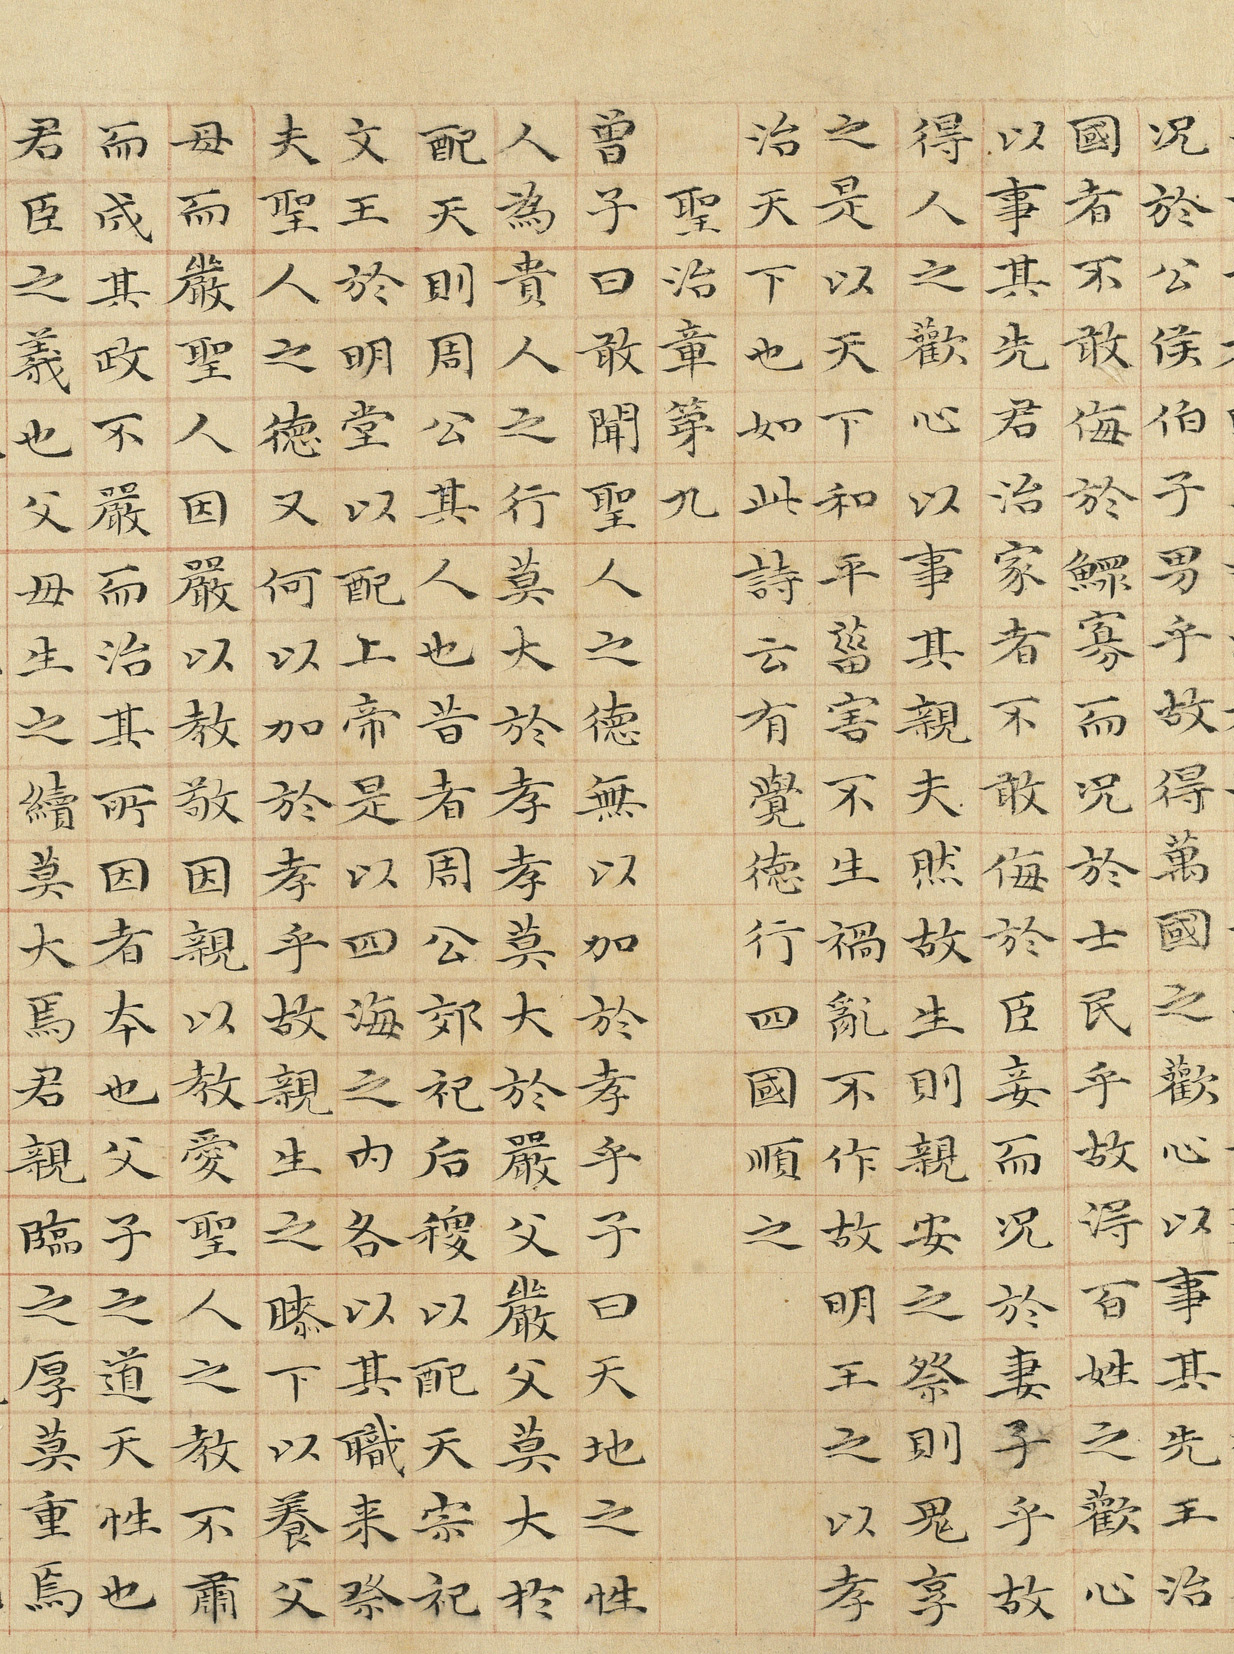 况於公侯伯子男乎故得萬國之歡心以事其先王治
國者不敢侮於鰥寡而况於士民乎故得百姓之歡心
以事其先君治家者不敢侮於臣妾而况於妻子乎故
得人之歡心以事其親夫然故生則親安之祭則鬼享
之是以天下和平菑害不生禍亂不作故明王之以孝
治天下也如此詩云有覺德行四國順之
聖治章第九
曾子曰敢聞聖人之德無以加於孝乎子曰天地之性
人為貴人之行莫大於孝孝莫大於嚴父嚴父莫大於
配天則周公其人也昔者周公郊祀后稷以配天宗祀
文王於明堂以配上帝是以四海之內各以其職来祭
夫聖人之德又何以加於孝乎故親生之膝下以養父
母而嚴聖人因嚴以教敬因親以教愛聖人之教不肅
而成其政不嚴而治其所因者本也父子之道天性也
君臣之義也父母生之續莫大焉君親臨之厚莫重焉